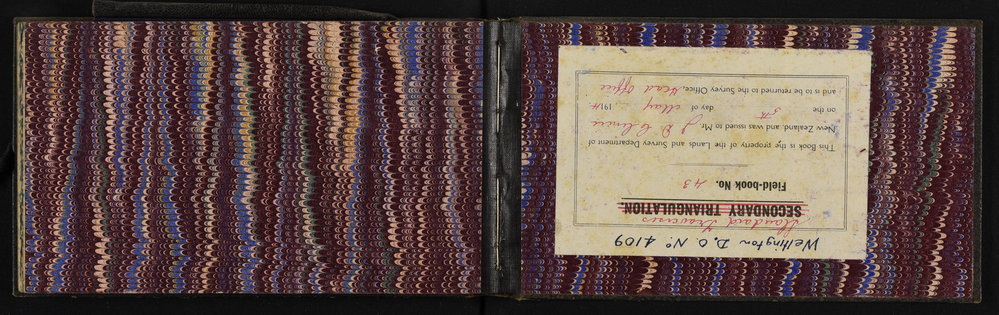 Wellington D.O. No 4109
Standard Traverses
SECONDARY TRIANGULATION
Field-book No. 43
This Book is the property of the Lands and Survey Department of
New Zealand and was issued to Mr. J D Climie
on the 5th day of May 1914
and is to be returned to the Survey Office, Head Office